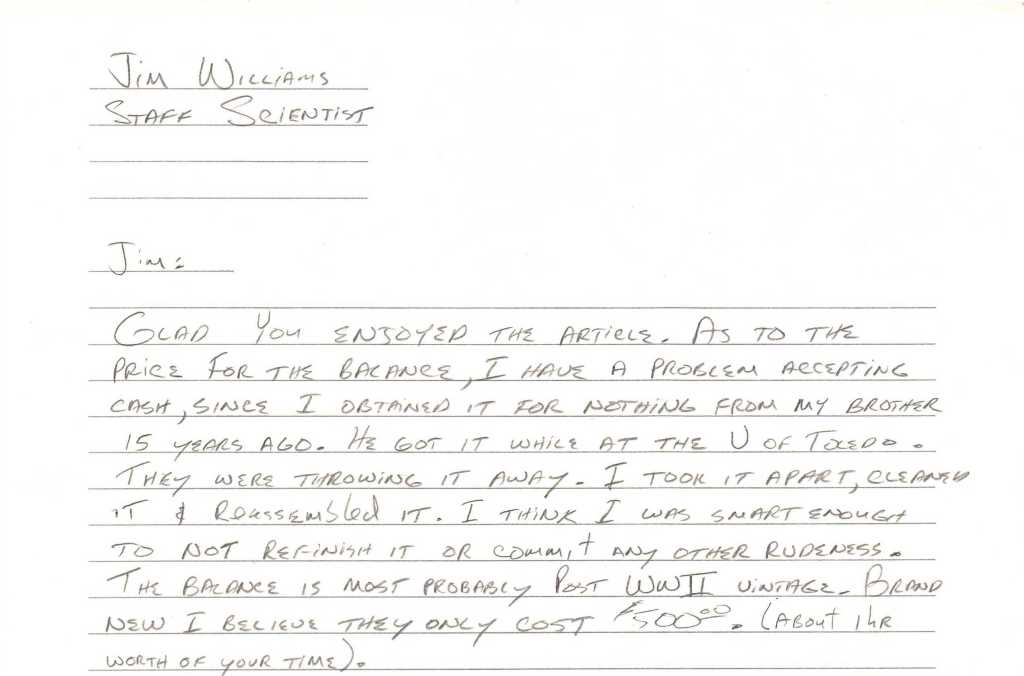 Jim Williams
Staff Scientist
Jim:
Glad you enjoyed the article. As to the
price for the balance, I have a problem accepting
cash, since I obtained it for nothing from my brother
15 years ago. He got it while at the U of Toledo.
They were throwing it away. I took it apart, cleaned
it & Reassembled it. I think I was smart enough
to not refinish it or commit any other rudeness.
The balance is most probably Post WWII vintage. Brand
new I believe they only cost $500.00. (About 1 hr
worth of your time).